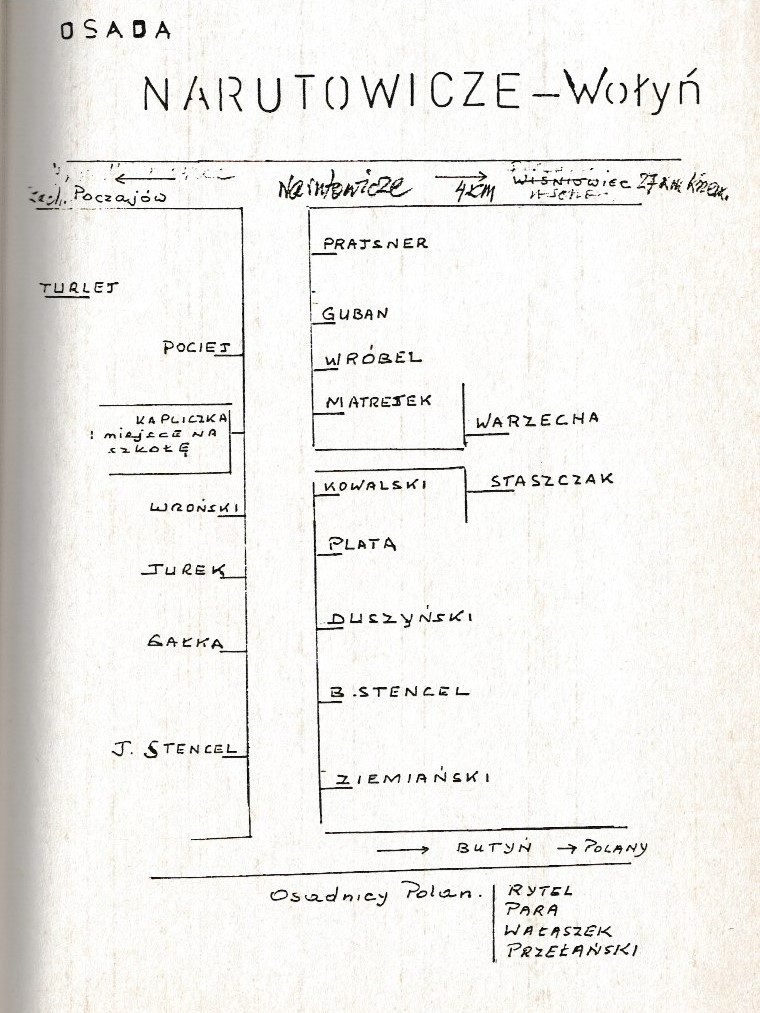 OSADA
NARUTOWICZE – Wołyń
← Narutowicze → 4 km WIŚNIOWIEC 27 km Krzem.
Zach. Poczajów
PRAJSNER
TURLEJ
GUBAN
POCIEJ
WRÓBEL
MATREJEK
KAPLICZKA
I miejsce NA
SZKOŁĘ
WARZECHA
KOWALSKI
STASZCZAK
WROŃSKI
PLATA
JUREK
DUSZYŃSKI
GAŁKA
B. STENCEL
J. STENCEL
ZIEMIAŃSKI
→ BUTYŃ → POLANY
Osadnicy Polan.
RYTEL
PARA
WAŁASZEK
PRZEŁAŃSKI